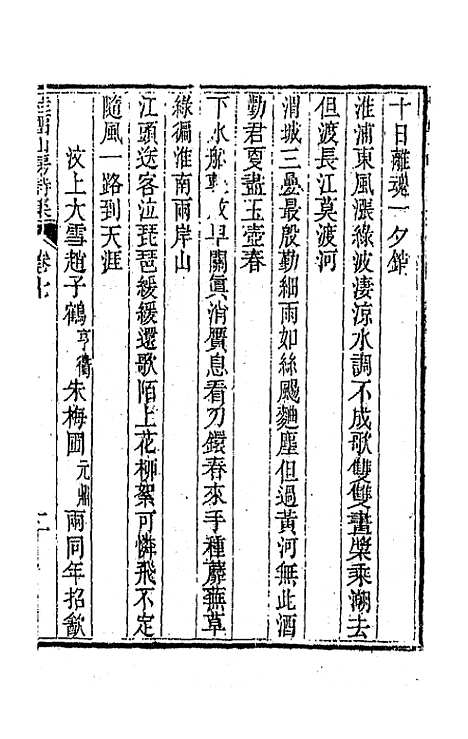 十日離魂一夕銷
淮浦東風漲綠波淒涼水調不成歌雙雙畫槳乘潮去
但渡長江莫渡河
渭城三疊最殷勤細雨如絲颺麴塵但過黃河無此酒
勸君更盡玉壺春
下水船早關眞消價息看刀鐶春來手種蘼蕪草
綠徧淮南兩岸山
江頭送客泣琵琶緩緩還歌陌上花柳絮可憐飛不定
隨風一路到天涯
汶上大雪趙子鶴亨衢朱梅圃元鼎兩同年招歙
山易詩集 卷七 二